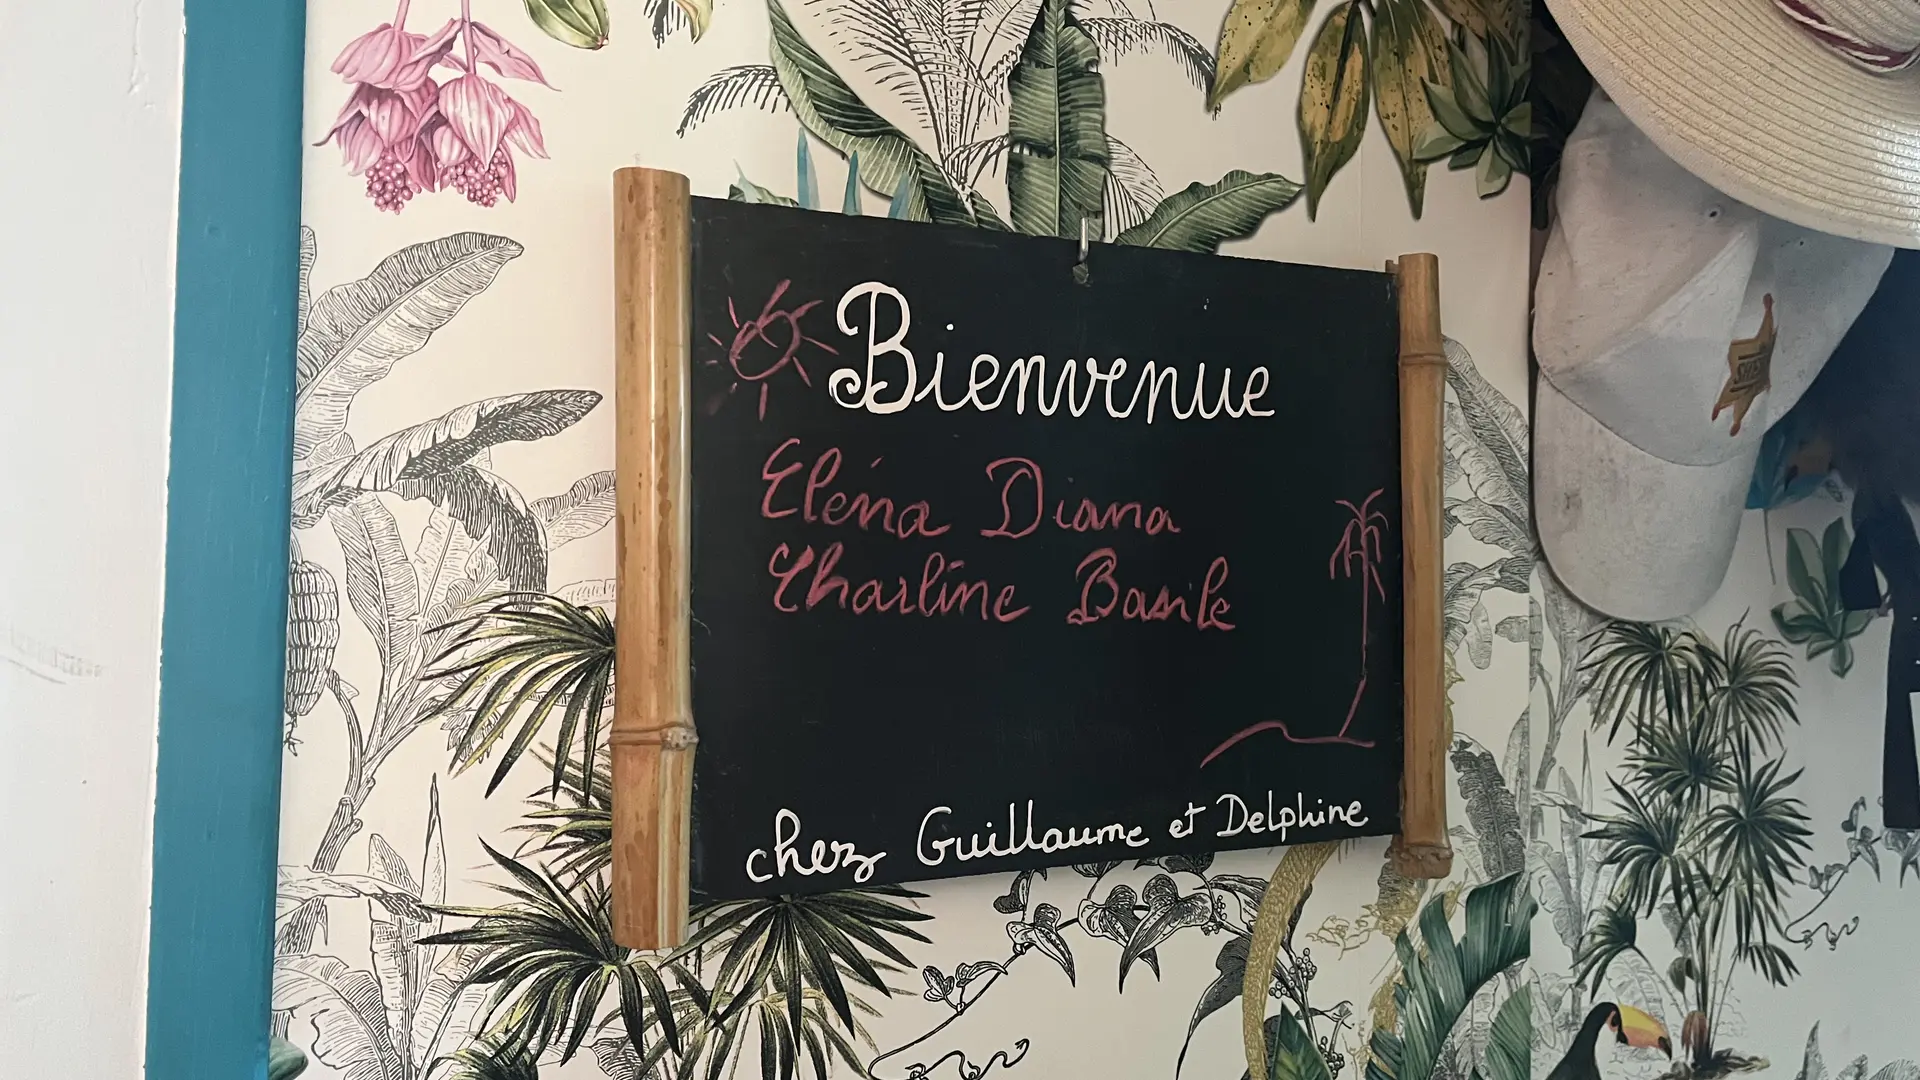 Bienvenue
Eléna Diana
Charline Basile
chez Guillaume et Delphine